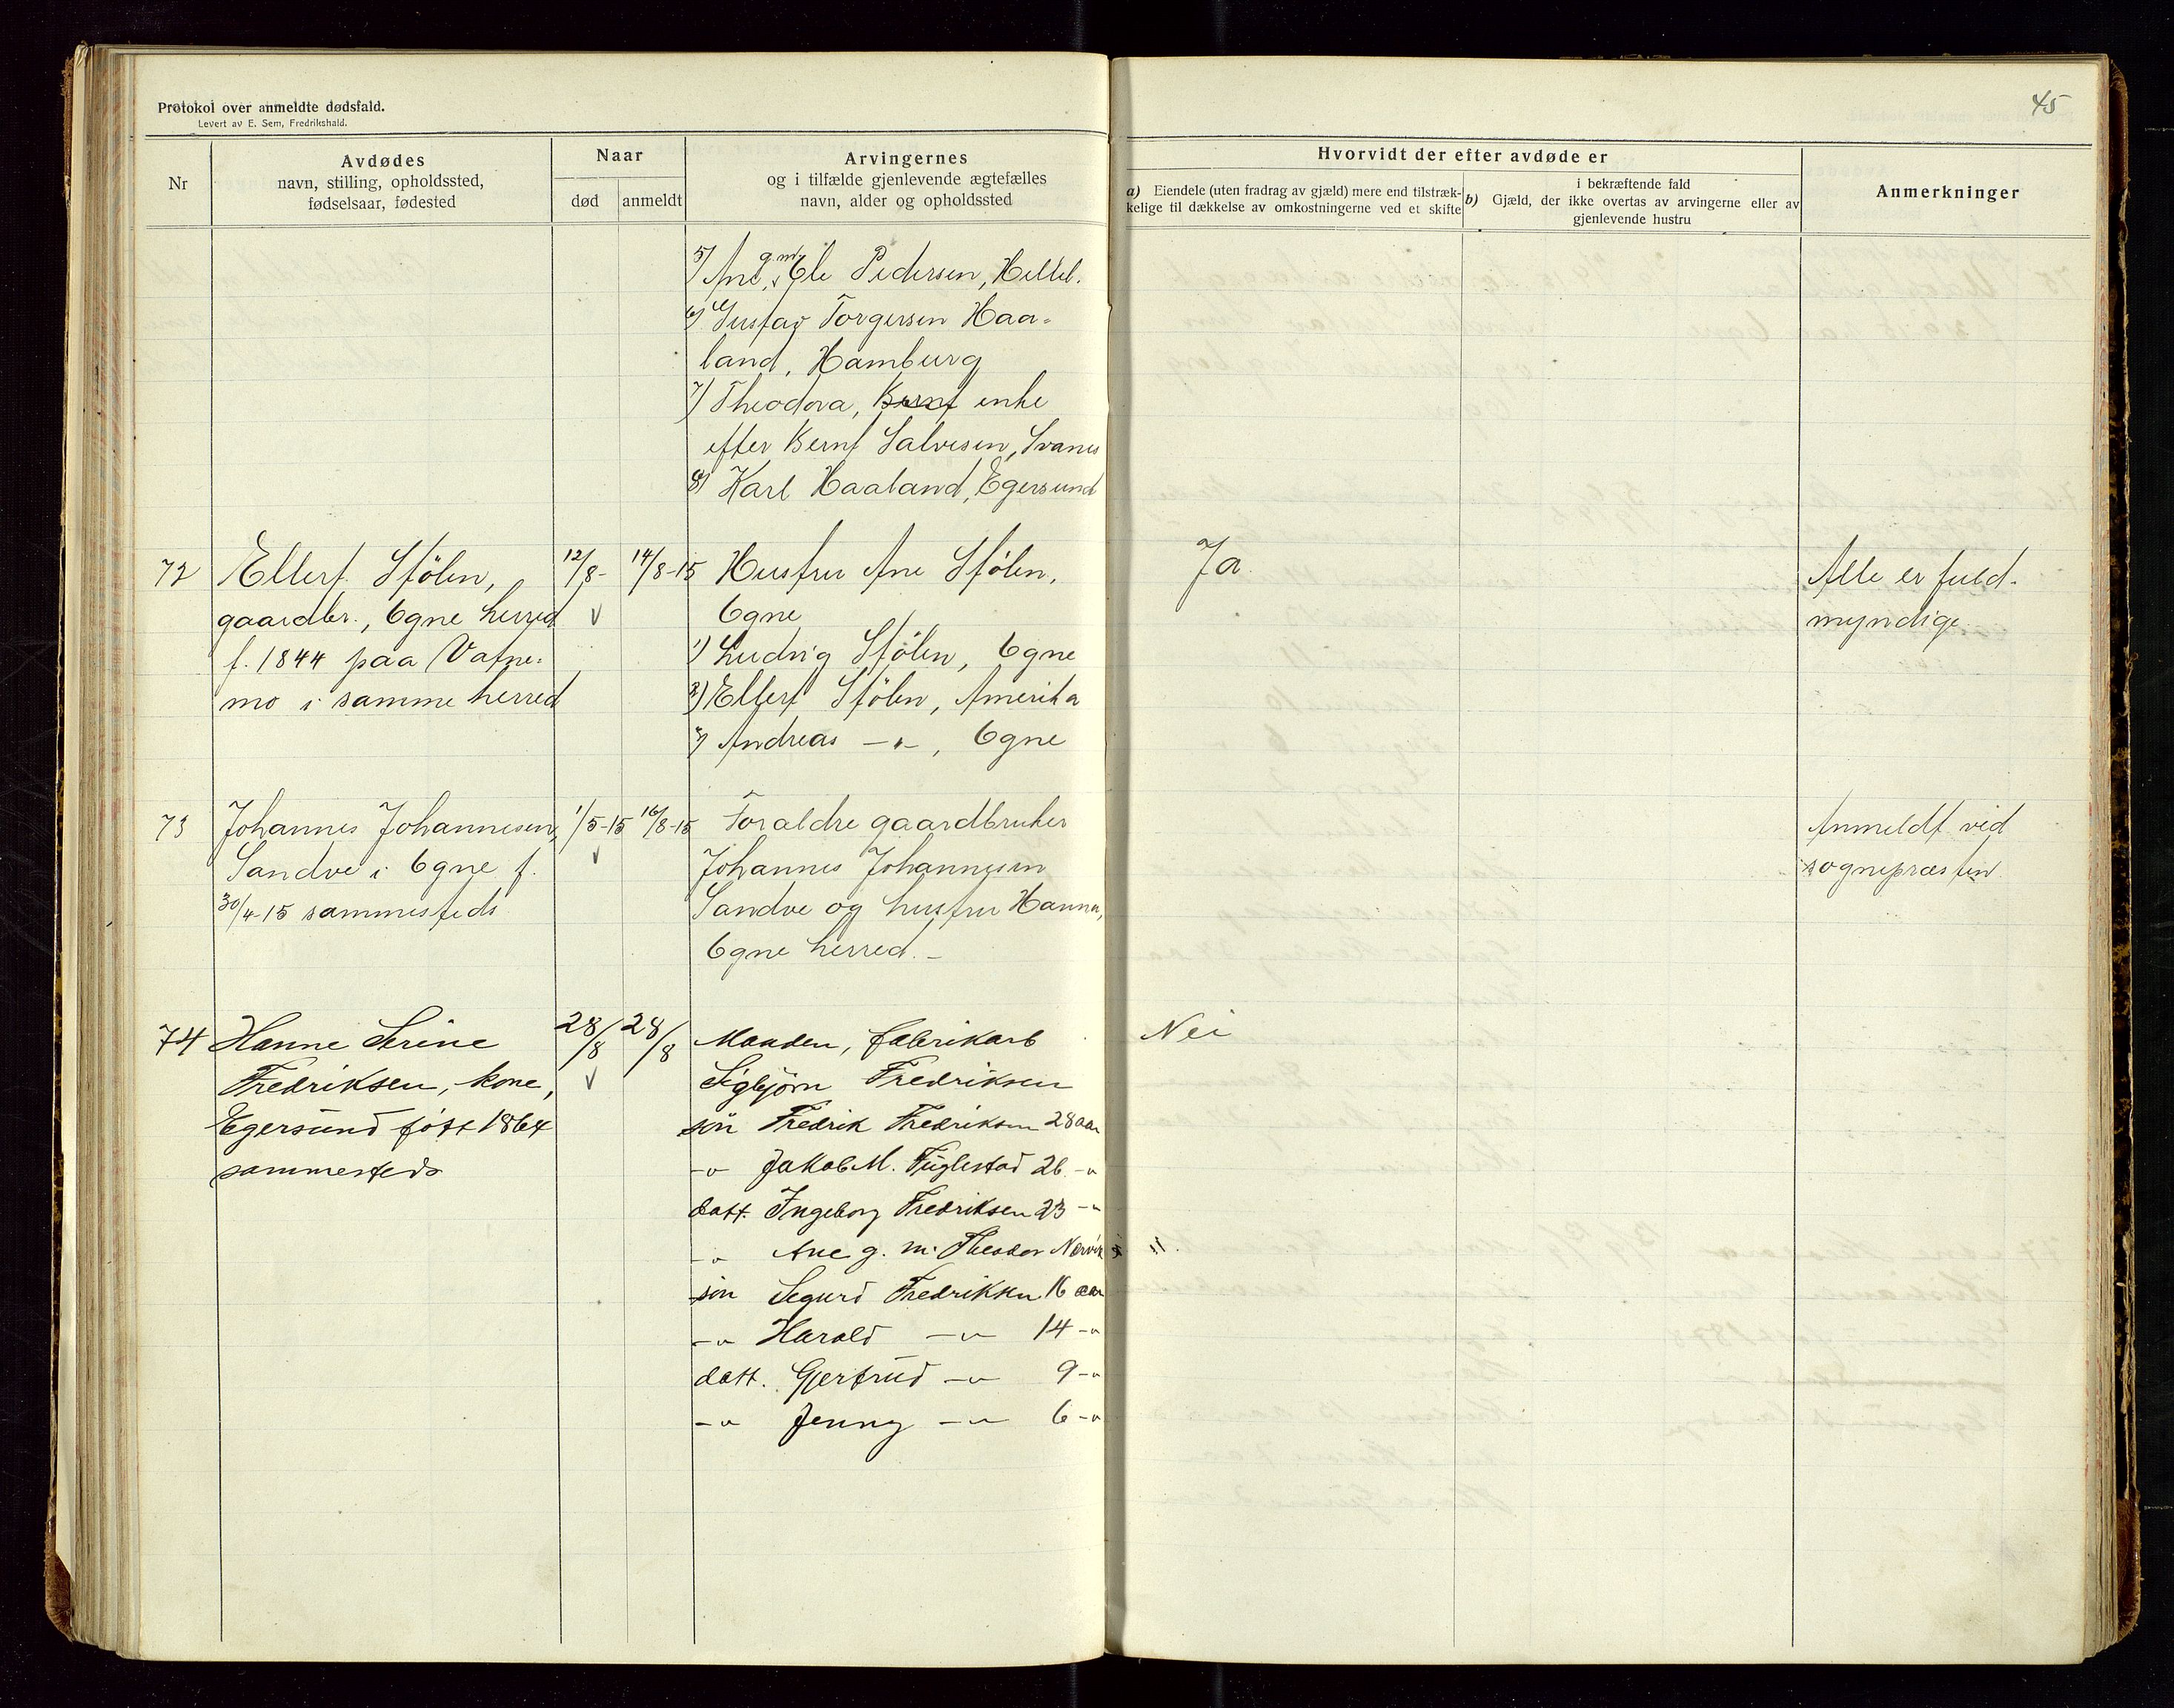 Protokol over anmeldte dødsfald.
Levert av E. Sem, Fredrikshald.
45
Nr
Avdødes
navn, stilling, opholdssted,
fødselsaar, fødested
Naar
død
anmeldt
Arvingernes
og i tilfælde gjenlevende ægtefælles
navn, alder og opholdssted
Hvorvidt der efter avdøde er
a) Eiendele (uten fradrag av gjæld) mere end tilstræk-
kelige til dækkelse av omkostningerne ved et skifte
i bekræftende fald
b) Gjæld, der ikke overtas av arvingerne eller av
gjenlevende hustru
Anmerkninger
5) Ane, g.m. Ole Pedersen, Hellel.
6) Gustav Torgersen Haa-
land, Hamburg
7) Theodora, Bernt enke
efter Bernt Salvesen, Svanes
8) Karl Haaland, Egersund
72 Ellert Stölen, 12/8- 14/8-15 Hustru Ane Stölen, Ja. Alle er fuld-
gaardbr., Ogne herred Ogne myndige.
f. 1844 paa Vatne- 1) Ludvig Stölen, Ogne
mo i samme herred 2) Ellert Stölen, Amerika
3) Andreas -"-, Ogne
73 Johannes Johannesen, 1/5-15 16/8-15 Foraldre gaardbruker Anmeldt ved
Sandve i Ogne f. Johannes Johannesen sognepræsten
30/4-15 sammesteds Sandve og hustru Hanna,
Ogne herred. -
74 Hanne Serine 28/8 28/8 Manden, fabrikarb Nei
Fredriksen, kone, Sigbjörn Fredriksen
Egersund født 1864 sön Fredrik Fredriksen 28 aar
sammesteds -"- Jakob M. Fuglestad 26 -"
datt. Ingeborg Fredriksen 23 -"
-"- Ane g. m. Theodor Nærvik
sön Segurd Fredriksen 16 aar
-"- Harald -"- 14 -"
datt. Gjertrud -"- 9 -"
-"- Jenny -"- 6 -"